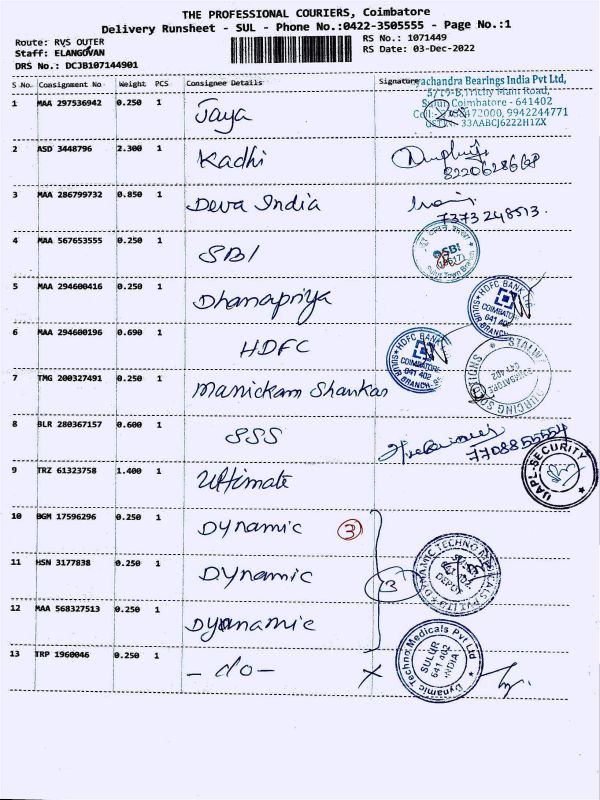 THE PROFESSIONAL COURIERS, Coimbatore
Delivery Runsheet - SUL - Phone No.:0422-3505555 - Page No.:1
Route: RVS OUTER
RS No.: 1071449
Staff: ELANGOVAN
RS Date: 03-Dec-2022
DRS No.: DCJB107144901
S No. Consignment No Weight PCS Consignee Details Signature
1 MAA 297536942 0.250 1 Jaya
achandra Bearings India Pvt Ltd,
5/19-B, Trichy Main Road,
Sulur, Coimbatore - 641402
2000, 9942244771
33AABCJ6222H1ZX
2 ASD 3448796 2.300 1 Kadhi
8220628668
3 MAA 286799732 0.850 1 Deva India
7373248513.
4 MAA 567653555 0.250 1 SBI
SBI
5 MAA 294600416 0.250 1 Dhanapriya
HDFC BANK
COIMBATORE
641 402
6 MAA 294600196 0.690 1 HDFC
HDFC BANK
COIMBATORE
641 402
7 TMG 200327491 0.250 1 Manickam Shankar
8 BLR 280367157 0.600 1 SSS
7708855554
9 TRZ 61323758 1.400 1 Ultimate
UAPL-SECURITY
10 BGM 17596296 0.250 1 Dynamic 3
11 HSN 3177838 0.250 1 Dynamic
3
DYNAMIC TECHNO MEDICALS PVT LTD
DEPOT
12 MAA 568327513 0.250 1 Dynamic
13 TRP 1960046 0.250 1 - do -
Dynamic Techno Medicals Pvt Ltd
SULUR
641 402
INDIA